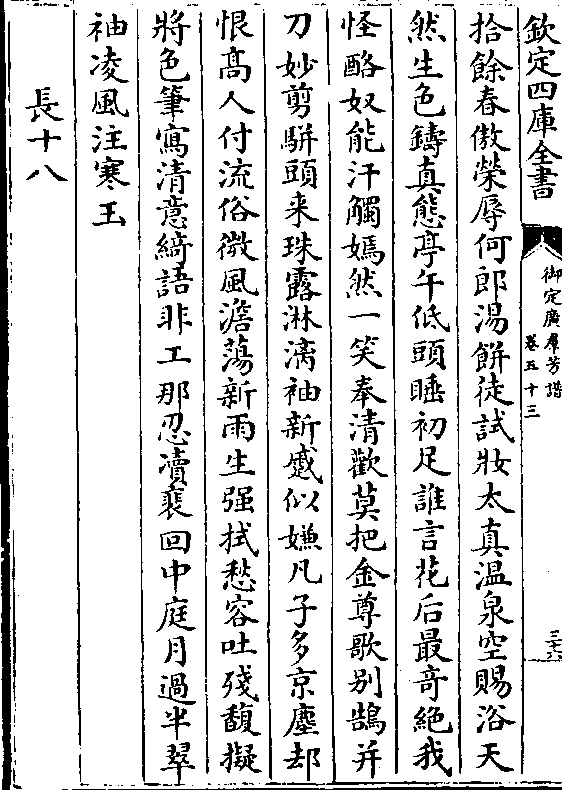 欽定四庫全書
御定廣羣芳譜
卷五十三
三六
拾餘春傲榮辱何郎湯餅徒試妝太真温泉空賜浴天
然生色鑄真態亭午低頭睡初足誰言花后最竒絕我
怪酪奴能汗觸嫣然一笑奉清歡莫把金尊歌别鵠并
刀妙剪駢頭来珠露淋漓袖新蹙似嫌凡子多京塵却
恨髙人付流俗微風澹蕩新雨生强拭愁容吐殘馥擬
將色筆寫清意綺語非工那忍瀆裵回中庭月過半翠
袖凌風注寒玉
長十八